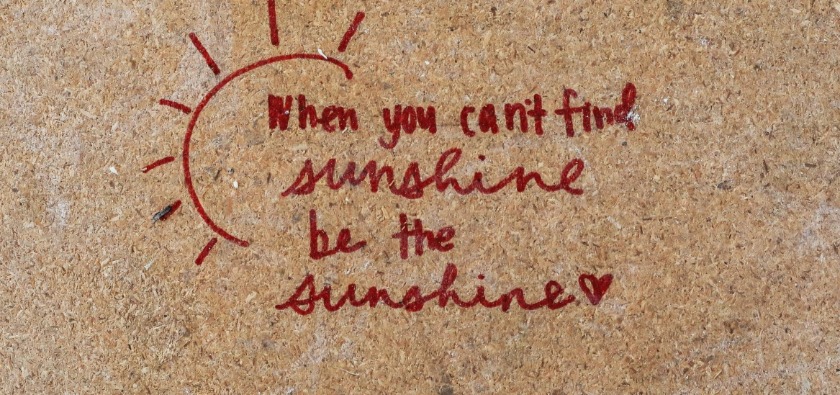 When you can't find
sunshine
be the
sunshine